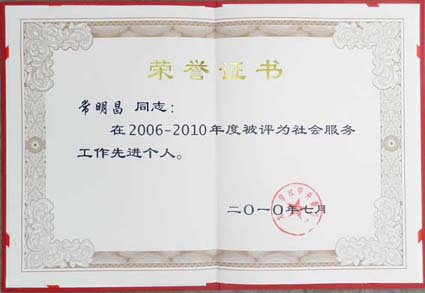 荣誉证书
常明昌 同志:
在2006-2010年度被评为社会服务
工作先进个人。
二〇一〇年七月